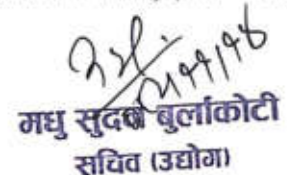 मधु सुदन बुर्लाकोटी
सचिव (उद्योग)